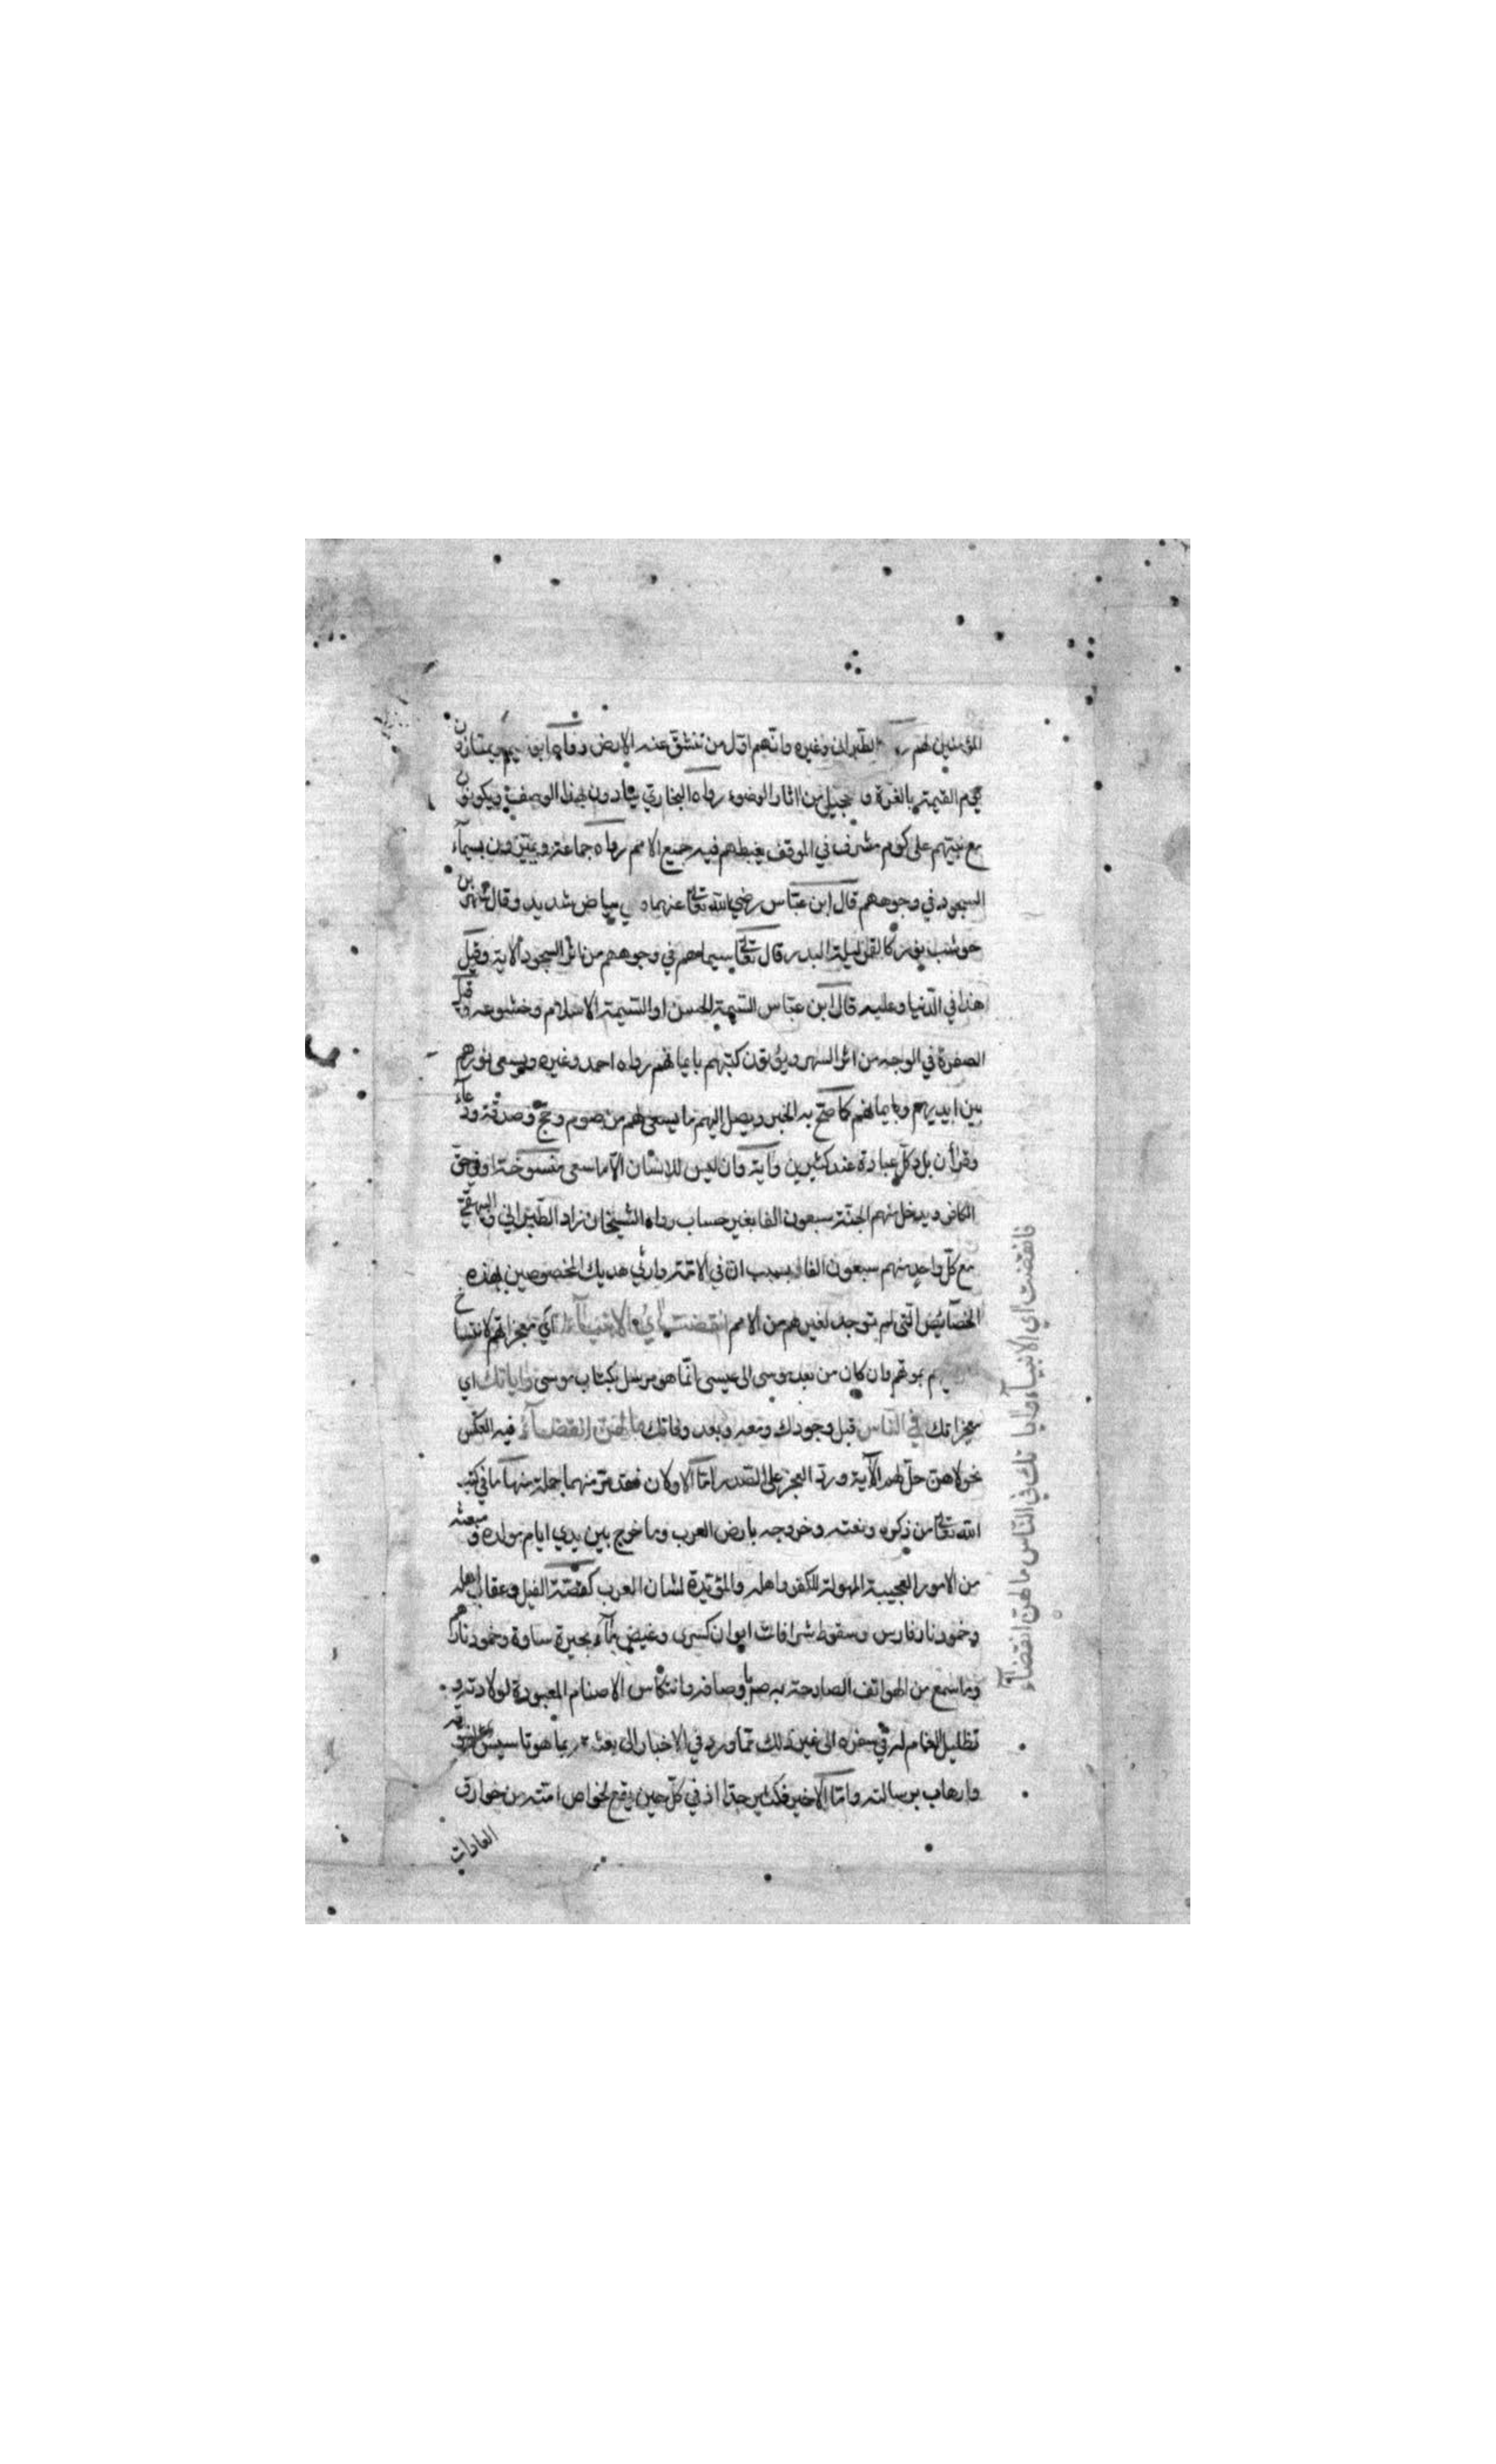 المؤمنين لهم رواه الطبراني وغيره وانهم اول من تنشق عنه الارض رواه ابو نعيم ويمتازون
يوم القيمة بالغرة والتحجيل من اثار الوضوء رواه البخاري ينادون بهذا الوصف ويكونون
مع نبيهم على كوم مشرف في الموقف يغبطهم فيه جميع الامم رواه جماعة ويميزون بسيمآء
السجود في وجوههم قال ابن عباس رضي الله تعالى عنهما هي بياض شديد وقال شهر بن
حوشب يؤر كالقمر ليلة البدر قال تعالى سيماهم في وجوههم من اثر السجود الاية وقيل
هذا في الدنيا وعليه قال ابن عباس السيمة الحسن او السيمة الاسلام وخشوعه وقيل
الصفرة في الوجه من اثر السهر ويؤتون كتبهم بايمانهم رواه احمد وغيره ويسعى نورهم
بين ايديهم وبايمانهم كما صح به الخبر ويصل اليهم ما يسعى لهم من صوم وحج وصدقة ودعآء
وقرأن بل وكل عبادة عند كثيرين وآية وان ليس للانسان الا ما سعى منسوخة او في حق
الكافر ويدخل منهم الجنة سبعون الفا بغير حساب رواه الشيخان زاد الطبراني والبيهقي
مع كل واحد منهم سبعون الفا بسبب ان في الامة وارثي هديك المخصوصين بهذه
الخصائص التي لم توجد لغيرهم من الامم انقضت آي الانبيآء اي معجزاتهم لانتساخ
بموتهم وان كان من بعد موسى الى عيسى انما هو مرسل بكتاب موسى واياتك اي
معجزاتك في الناس قبل وجودك ومعه وبعد وفاتك ما لهن انقضآء فيه العكس
نحو لا هن حل لهم الآية ورد العجز على الصدر اما الاولان فقد مر منهما جملة منها ما في كتب
الله تعالى من ذكره ونعته وخروجه بارض العرب وما خرج بين يدي ايام مولده ومبعثه
من الامور العجيبة المهولة للكفر واهله والمؤيدة لشان العرب كقصة الفيل وعقاب اهله
وخمود نار فارس وسقوط شرافات ايوان كسرى وغيض مآء بحيرة ساوة وخمود نارهم
وما سمع من الهواتف الصارخة به وباوصافه وانتكاس الاصنام المعبودة لولادته و
تظليل الغمام له في سفره الى غير ذلك مما ورد في الاخبار الى بعثه مما هو تاسيس لنبوته
وارهاب برسالته واما الاخير فكثير جدا اذ في كل حين يقع لخواص امته من خوارق
العادات
فانقضت آي الانبيآء وآياتك في الناس ما لهن انقضآء